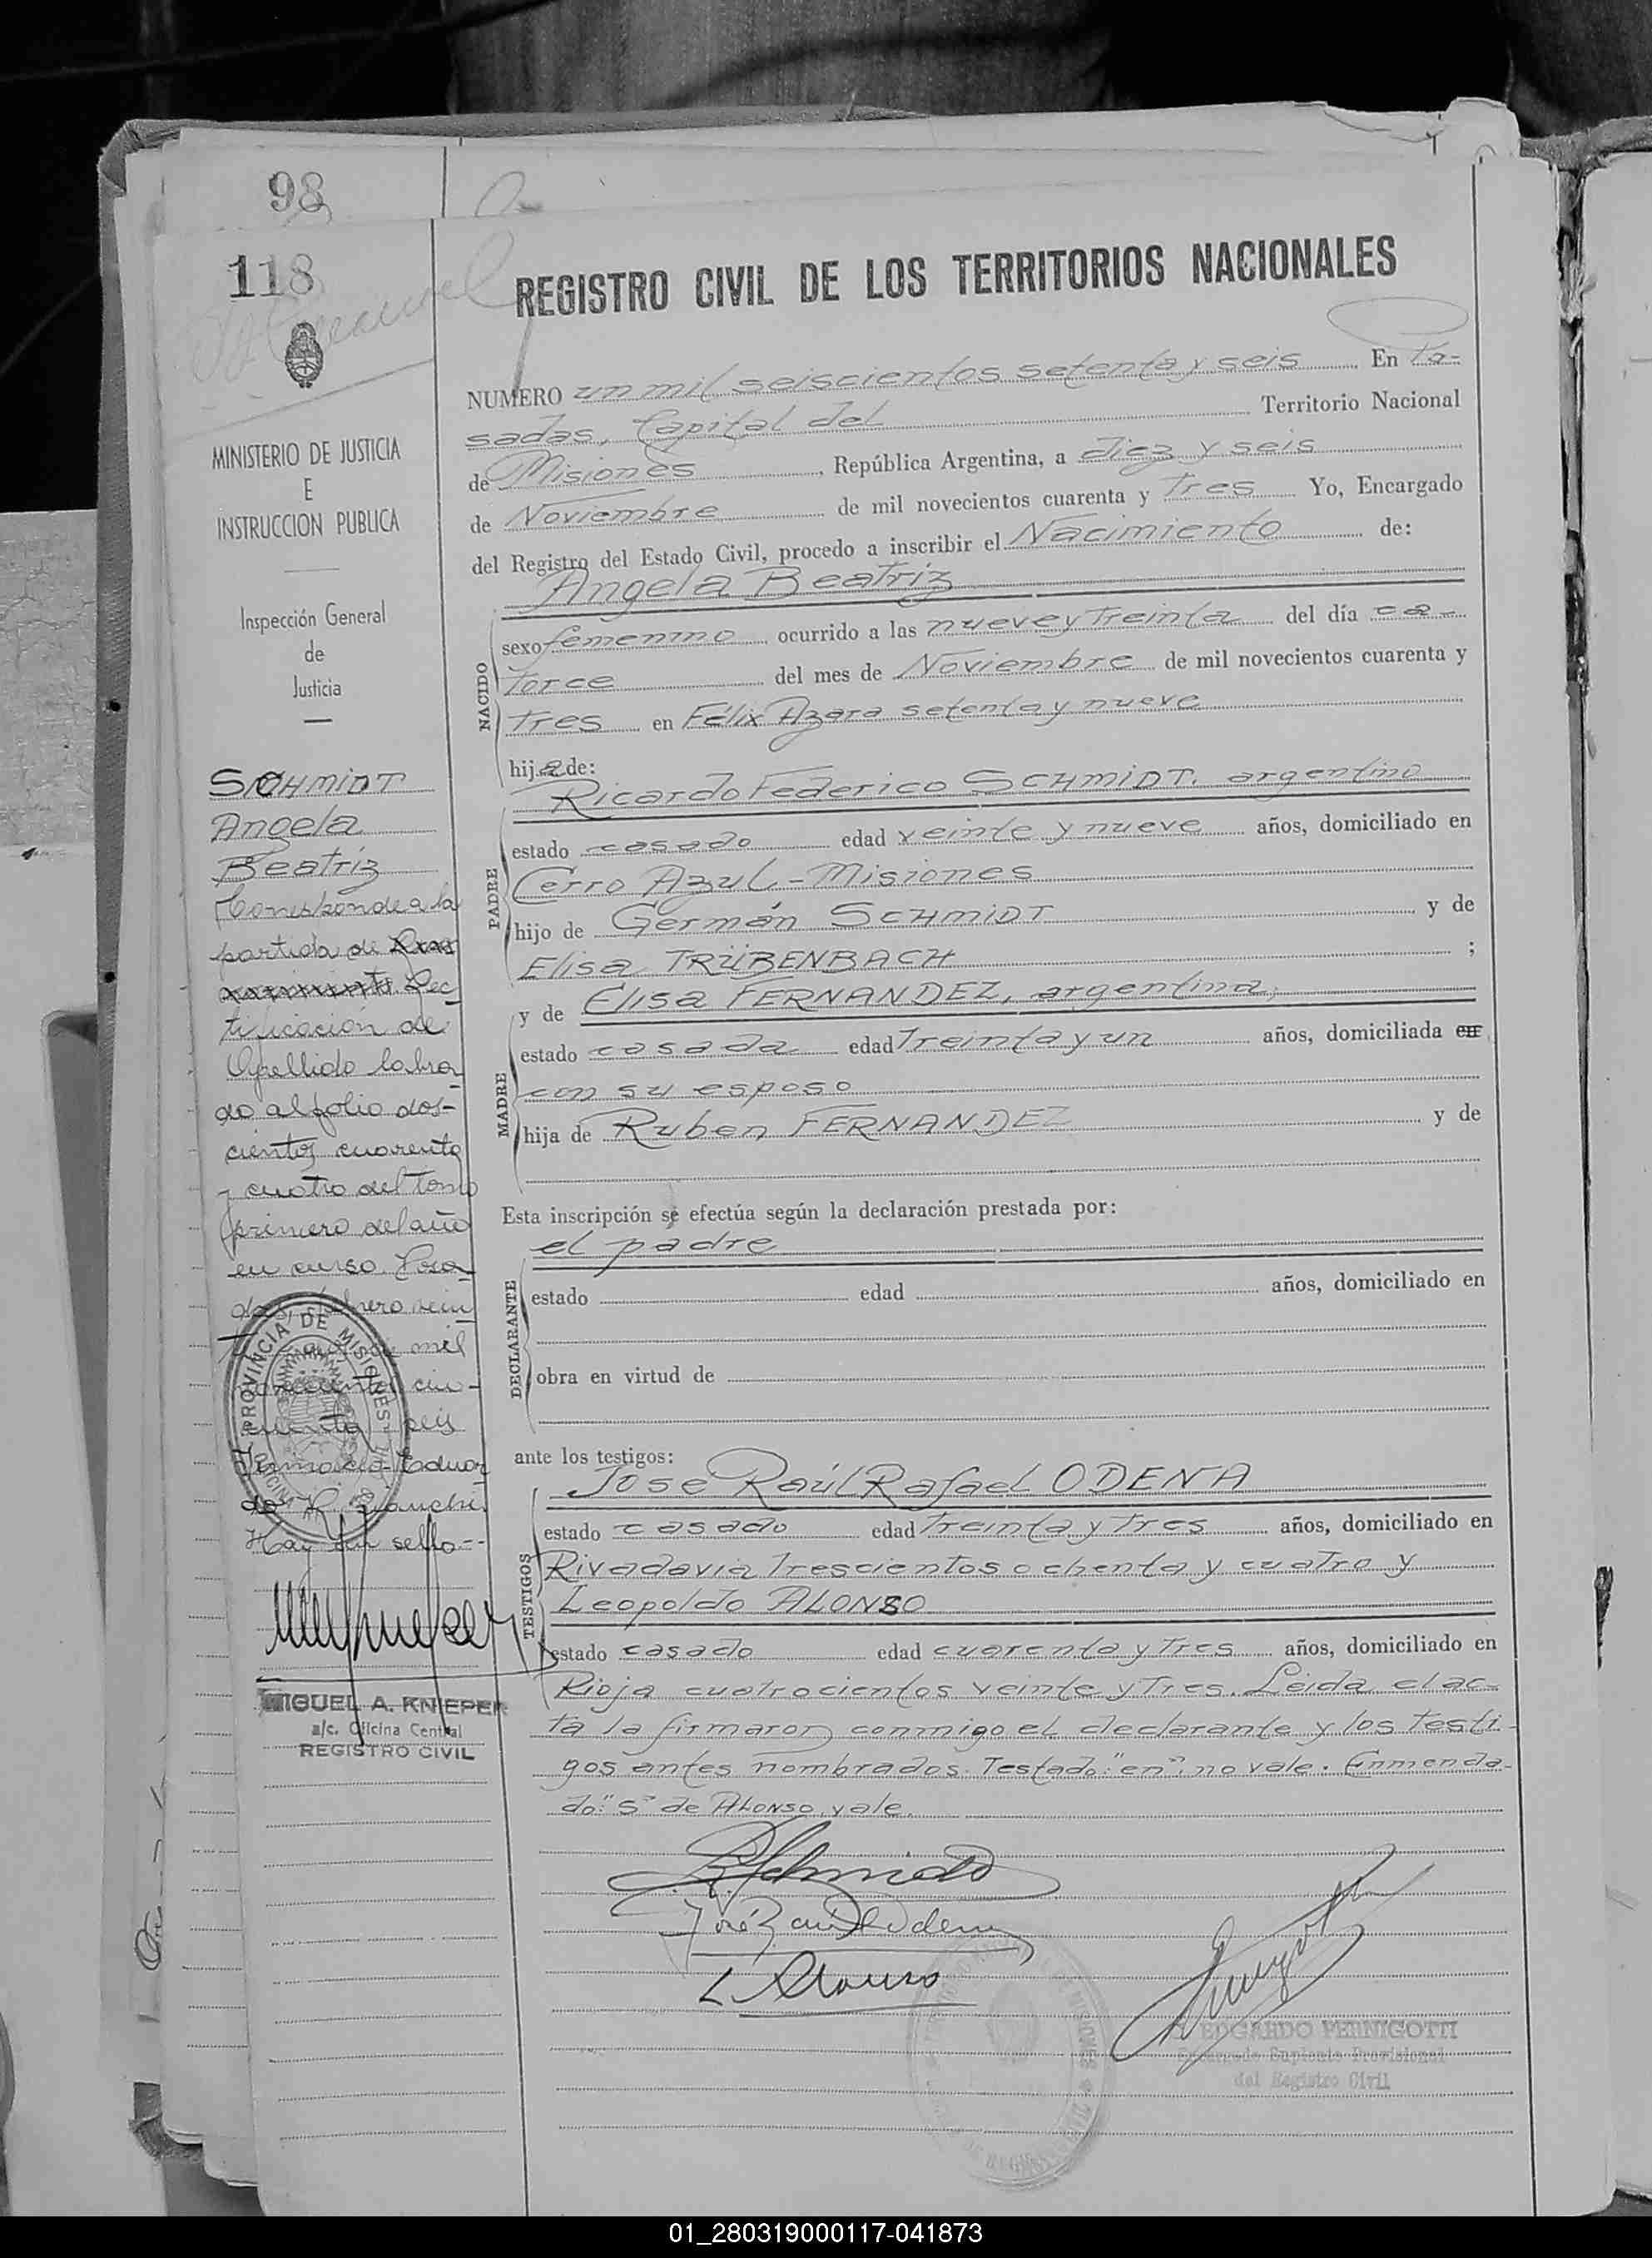 98
118
REGISTRO CIVIL DE LOS TERRITORIOS NACIONALES
NUMERO un mil seiscientos setenta y seis En Po-
sadas, Capital del Territorio Nacional
de Misiones, República Argentina, a diez y seis
de Noviembre de mil novecientos cuarenta y tres Yo, Encargado
del Registro del Estado Civil, procedo a inscribir el Nacimiento de:
Angela Beatriz
NACIDO
sexo femenino ocurrido a las nueve y treinta del día ca-
torce del mes de Noviembre de mil novecientos cuarenta y
tres en Félix Azara setenta y nueve
hija de:
Ricardo Federico SCHMIDT, argentino
PADRE
estado casado edad veinte y nueve años, domiciliado en
Cerro Azul - Misiones
hijo de Germán SCHMIDT y de
Elisa TRÜBENBACH ;
y de Elisa FERNANDEZ, argentina,
MADRE
estado casada edad treinta y un años, domiciliada en
con su esposo
hija de Ruben FERNANDEZ y de
Esta inscripción se efectúa según la declaración prestada por:
el padre
DECLARANTE
estado edad años, domiciliado en
obra en virtud de
ante los testigos:
José Raúl Rafael ODENA
TESTIGOS
estado casado edad treinta y tres años, domiciliado en
Rivadavia trescientos ochenta y cuatro y
Leopoldo ALONSO
estado casado edad cuarenta y tres años, domiciliado en
Rioja cuatrocientos veinte y tres. Leida el ac-
ta la firmaron conmigo el declarante y los testi-
gos antes nombrados. Testado: "en", no vale. Enmenda-
do: "S" de ALONSO, vale.
L Alonso
EDGARDO PERNIGOTTI
Encargado Suplente Provisional
del Registro Civil
MINISTERIO DE JUSTICIA
E
INSTRUCCION PUBLICA
Inspección General
de
Justicia
SCHMIDT
Angela
Beatriz
Corresponde a la
partida de
Rec
tificación de
Apellido labra
do al folio dos-
cientos cuarenta
y cuatro del tomo
primero del año
en curso. Posa
das, febrero vein
mil
novecientos cin-
cuenta y seis
Firmado: Eduar
do R. Bianchi.
Hay un sello--
PROVINCIA DE MISIONES
MIGUEL A. KNIEPER
a/c. Oficina Central
REGISTRO CIVIL
01_280319000117-041873